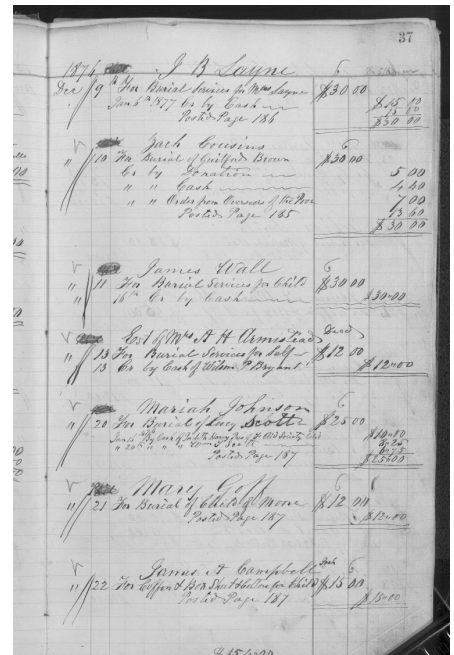 37
1876 J B Layne
Dec 9th For Burial Services for Mrs Layne $30 00
Jan 5th 1877 Cr by Cash $15 00
Posted Page 186 15 00
$30 00
Zach Cousins
" 10 For Burial of Guilford Brown $30 00
Cr by Donation 5 00
" " Cash 4 40
" " Order from Overseers of the Poor 7 00
Posted Page 185 13 60
$30 00
James Wall
" 11 For Burial Services for Child $30 00
16th Cr by Cash $30.00
Est of Mrs A H Armistead Decd
" 13 For Burial Services for Self $12 00
13 Cr by Cash of Wilson P Bryant $12.00
Mariah Johnson
" 20 For Burial of Lucy Scott $25 00
$10.00
Posted Page 187 $25.00
Mary Goff
" 21 For Burial of Child of Moore $12 00
Posted Page 187 $12.00
James A Campbell
" 22 For Coffin & Box for Child $15 00
Posted Page 187 $15.00